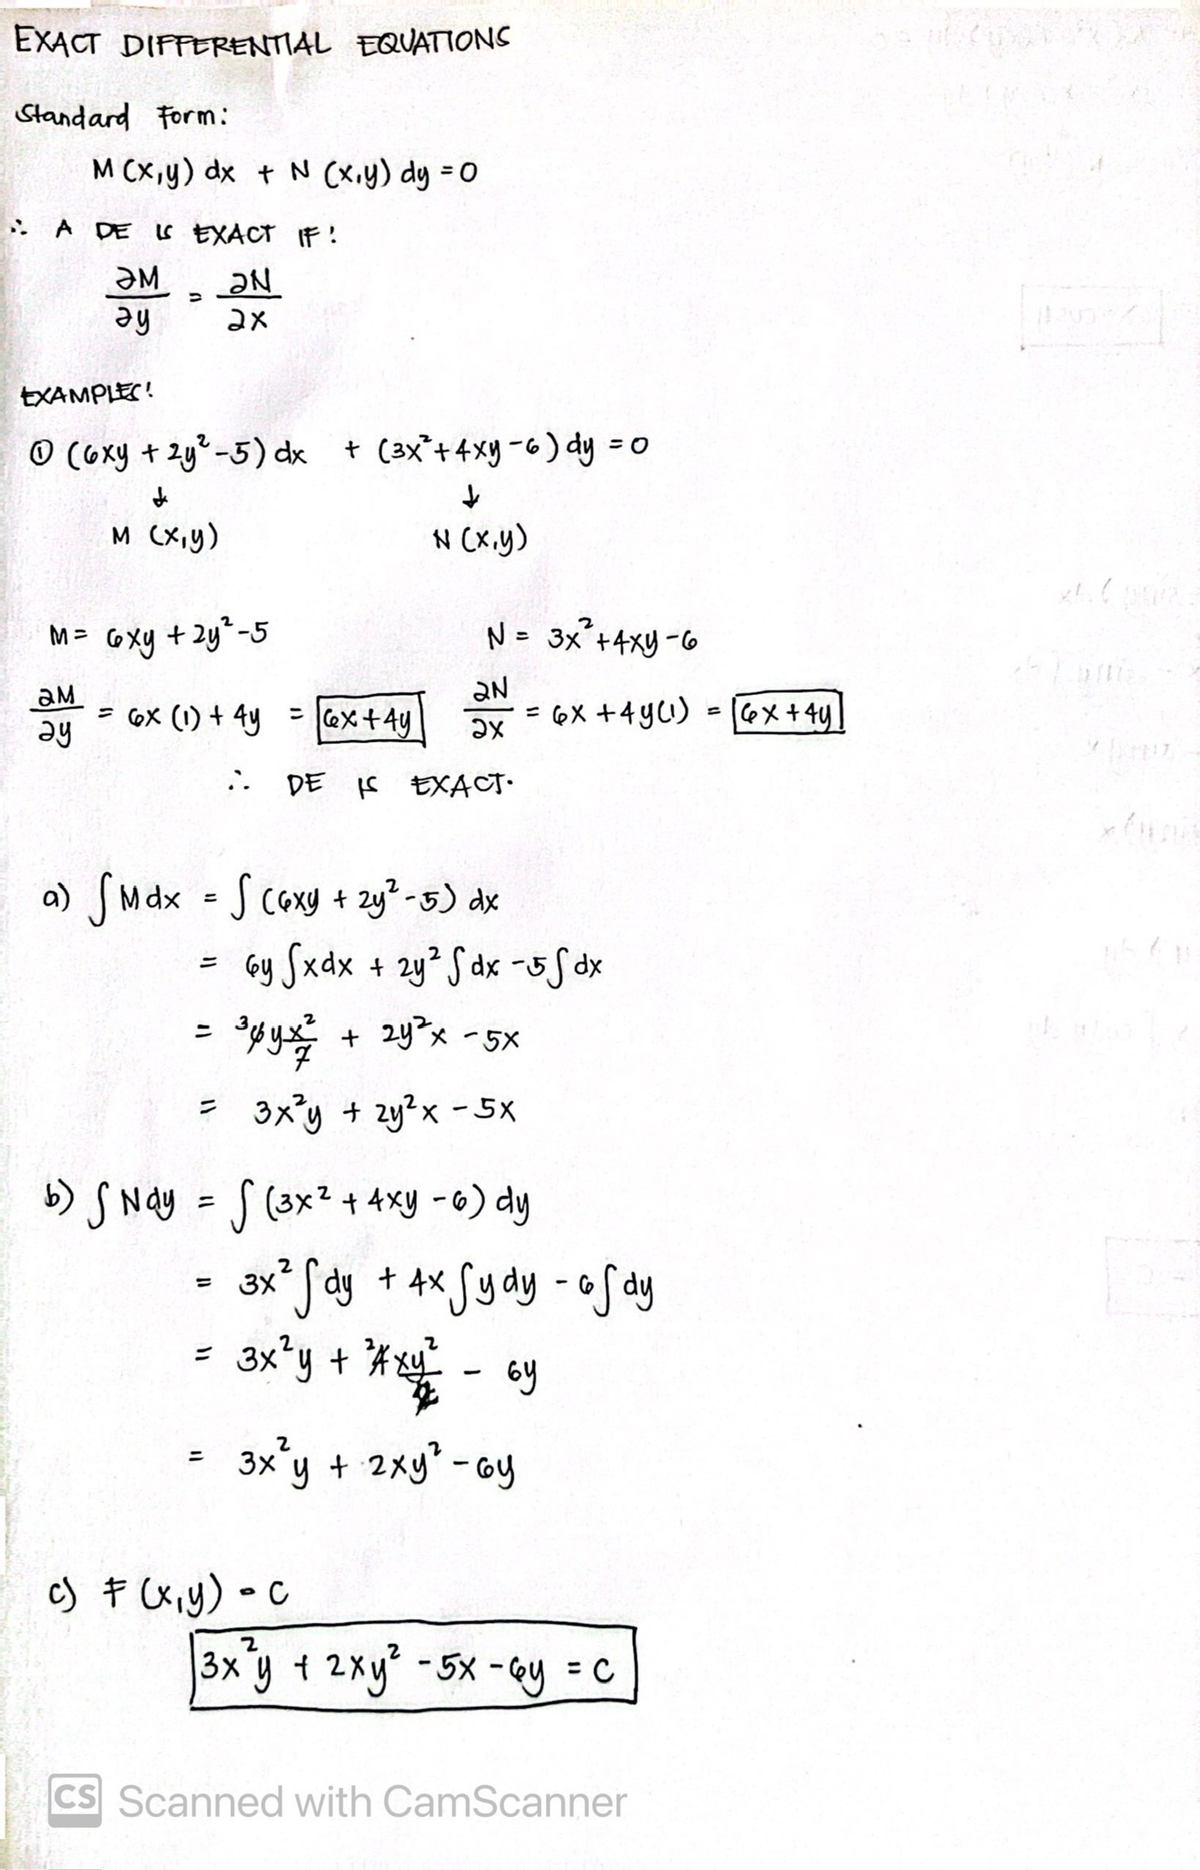 EXACT DIFFERENTIAL EQUATIONS
Standard Form:
M (x,y) dx + N (x,y) dy = 0
∴ A DE IS EXACT IF:
∂M/∂y = ∂N/∂x
EXAMPLES:
① (6xy + 2y² - 5) dx + (3x² + 4xy - 6) dy = 0
↓ ↓
M (x,y) N (x,y)
M = 6xy + 2y² - 5 N = 3x² + 4xy - 6
∂M/∂y = 6x (1) + 4y = 6x + 4y ∂N/∂x = 6x + 4y(1) = 6x + 4y
∴ DE IS EXACT.
a) ∫ M dx = ∫ (6xy + 2y² - 5) dx
= 6y ∫ x dx + 2y² ∫ dx - 5 ∫ dx
= ³6yx²/2 + 2y²x - 5x
= 3x²y + 2y²x - 5x
b) ∫ N dy = ∫ (3x² + 4xy - 6) dy
= 3x² ∫ dy + 4x ∫ y dy - 6 ∫ dy
= 3x²y + ²4xy²/2 - 6y
= 3x²y + 2xy² - 6y
c) F (x,y) = C
3x²y + 2xy² - 5x - 6y = C
CS Scanned with CamScanner